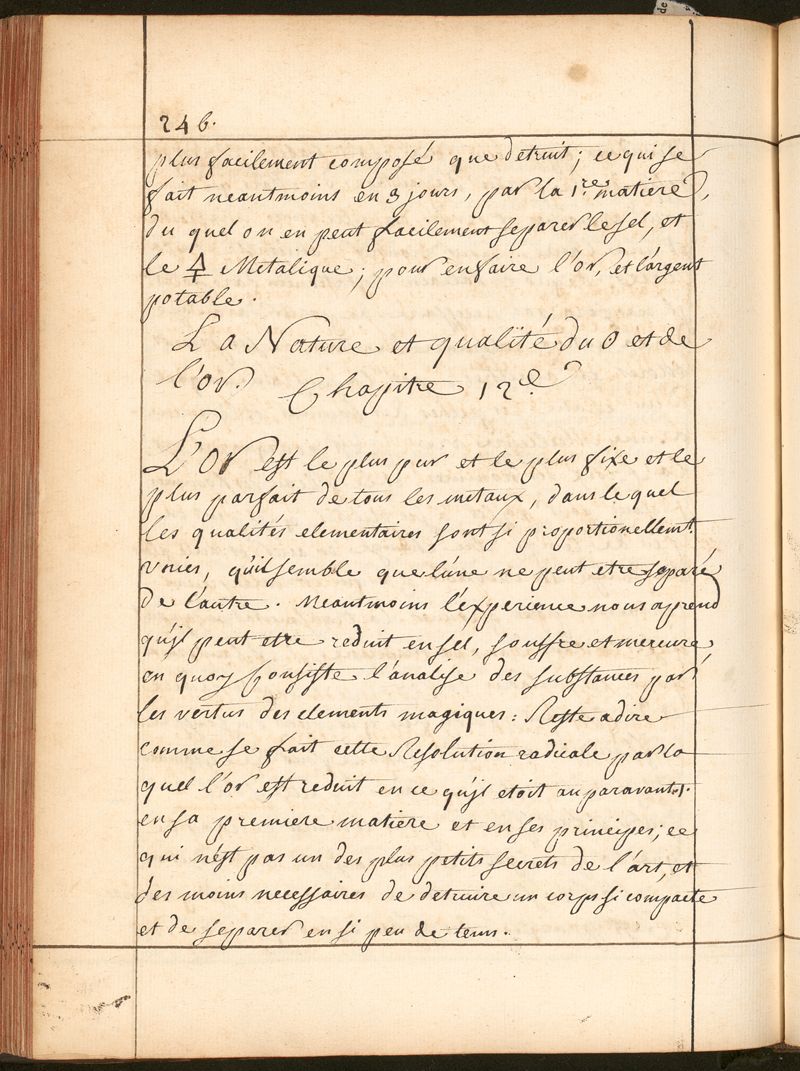 246.
plus facilement composé que detruit; ce qui se
fait neantmoins en 3 jours, par la 1re matiere,
du quel on en peut facilement separer le sel, et
le 🜍 Metalique; pour en faire l'or, et l'argent
potable.
La Nature et qualité du O et de
l'or. Chapitre 12e
L'Or est le plus pur et le plus fixe et le
plus parfait de tous les metaux, dans le quel
les qualités elementaires sont si proportionellemt.
vnies, qu'il semble que l'une ne peut etre separé
de l'autre. Neantmoins l'experience nous aprend
qu'jl peut etre reduit en sel, souffre et mercure
en quoy Consiste l'analise des substances par
les vertus des elements magiques: Reste a dire
comme se fait cette Resolution radicale par la
quel l'or est reduit en ce qu'jl etoit auparavant
en sa premiere matiere et en ses principes; ce
qui n'est pas un des plus petits secrets de l'art, et
des moins necessaires de detruire un corps si compacte
et de separer en si peu de tems.
de